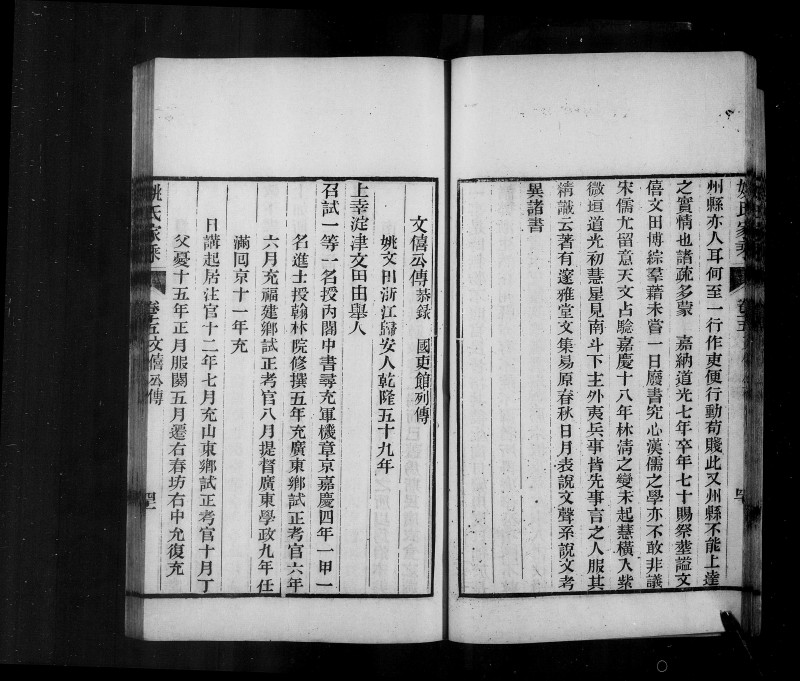 州縣亦人耳何至一行作吏便行動苟賤此又州縣不能上達
之實情也諸疏多蒙　嘉納道光七年卒年七十賜祭塟謚文
僖文田博綜羣藉未嘗一日廢書究心漢儒之學亦不敢非議
宋儒尤留意天文占驗嘉慶十八年林淸之變未起慧橫入紫
微垣道光初慧星見南斗下主外夷兵事皆先事言之人服其
精識云著有邃雅堂文集易原春秋日月表說文聲系說文考
異諸書
姚氏家乘
卷五
文僖公傳恭錄　國史館列傳
姚文田浙江歸安人乾隆五十九年
上幸淀津文田由舉人
召試一等一名授內閣中書尋充軍機章京嘉慶四年一甲一
名進士授翰林院修撰五年充廣東鄉試正考官六年
六月充福建鄉試正考官八月提督廣東學政九年任
滿回京十一年充
日講起居注官十二年七月充山東鄉試正考官十月丁
父憂十五年正月服闋五月遷右春坊右中允復充
姚氏家乘
卷五文僖公傳